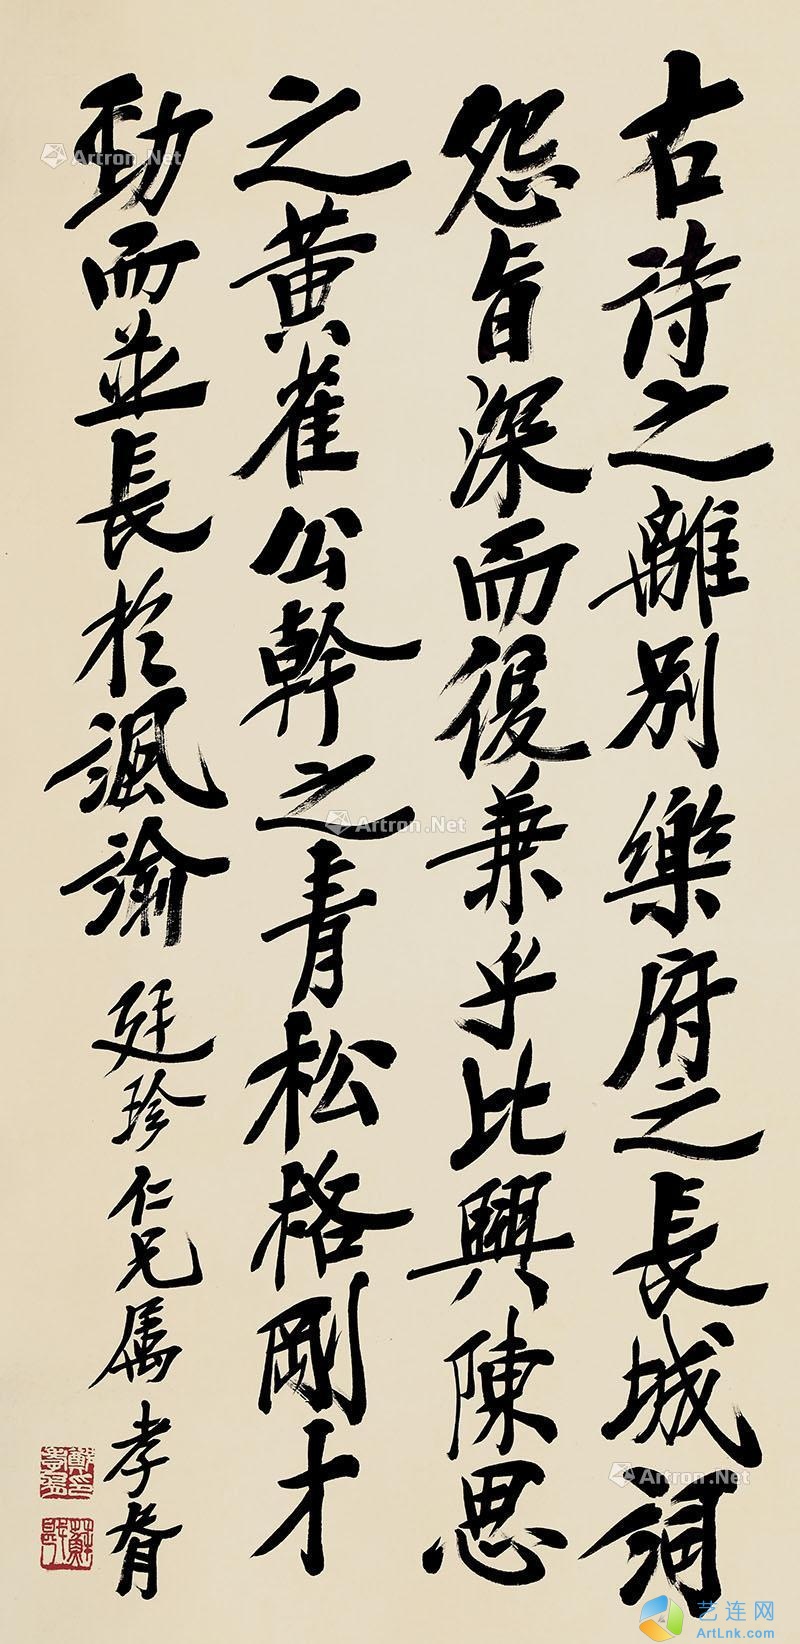 古詩之離別樂府之長城詞
怨旨深而復兼乎比興陳思
之黃雀公幹之青松格剛才
勁而並長於諷諭
廷珍仁兄属 孝胥
Artron.Net
Artron.Net
Artron.Net
Artron.Net
艺连网
ArtLnk.com